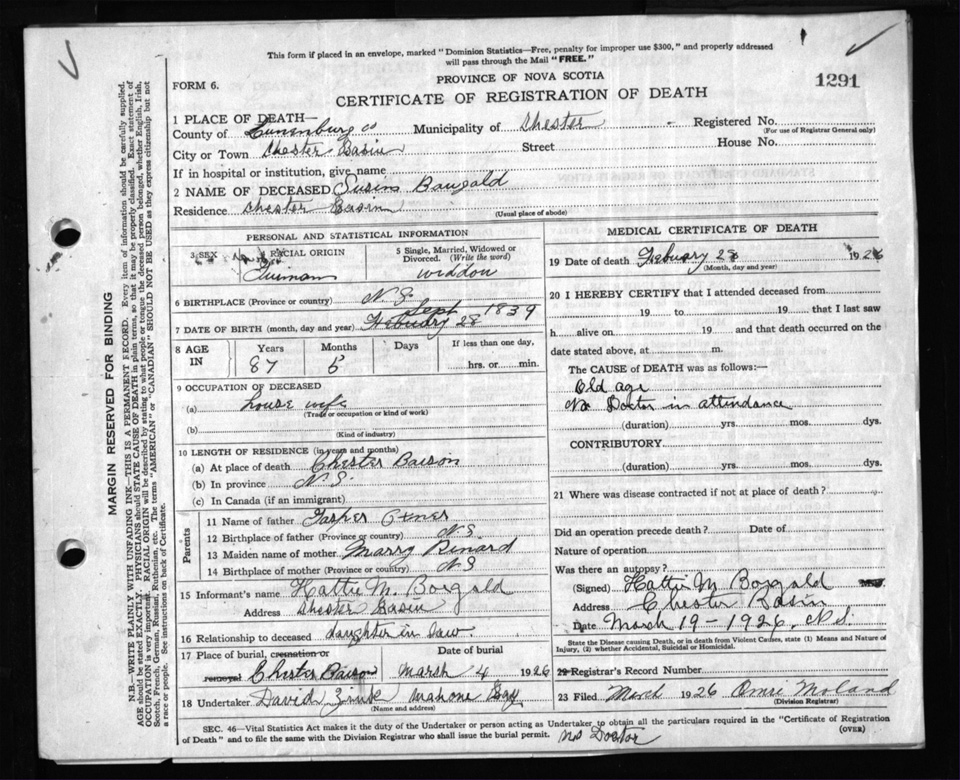 This form if placed in an envelope, marked "Dominion Statistics—Free, penalty for improper use $300," and properly addressed
will pass through the Mail "FREE."
PROVINCE OF NOVA SCOTIA
FORM 6.
1291
CERTIFICATE OF REGISTRATION OF DEATH
1 PLACE OF DEATH—
County of Lunenburg co Municipality of Chester Registered No.
(For use of Registrar General only)
City or Town Chester Basin Street House No.
If in hospital or institution, give name
2 NAME OF DECEASED Susins Baugald
Residence Chester Basin
(Usual place of abode)
PERSONAL AND STATISTICAL INFORMATION
3 SEX
4 RACIAL ORIGIN
5 Single, Married, Widowed or Divorced. (Write the word)
widdou
6 BIRTHPLACE (Province or country) N. S.
Sept
7 DATE OF BIRTH (month, day and year) Febuary 28 1839
8 AGE IN
Years Months Days If less than one day,
87 5 hrs. or min.
9 OCCUPATION OF DECEASED
(a) house wife
(Trade or occupation or kind of work)
(b)
(Kind of industry)
10 LENGTH OF RESIDENCE (in years and months)
(a) At place of death Chester Baison
(b) In province N. S.
(c) In Canada (if an immigrant)
Parents
11 Name of father Jasper
12 Birthplace of father (Province or country) N S
13 Maiden name of mother Marry Rinard
14 Birthplace of mother (Province or country) N S
15 Informant's name Hattie M. Borgald
Address Chester Basin
16 Relationship to deceased daughter in law.
17 Place of burial, cremation or removal Date of burial
Chester Baison March 4 1926
18 Undertaker David Zink Mahone Bay
(Name and address)
MEDICAL CERTIFICATE OF DEATH
19 Date of death Febuary 28 1926
(Month, day and year)
20 I HEREBY CERTIFY that I attended deceased from
19 to 19 that I last saw
h alive on 19 and that death occurred on the
date stated above, at m.
The CAUSE of DEATH was as follows:—
Old age
No Doctor in attendance
(duration) yrs. mos. dys.
CONTRIBUTORY
(duration) yrs. mos. dys.
21 Where was disease contracted if not at place of death?
Did an operation precede death? Date of
Nature of operation
Was there an autopsy?
(Signed) Hattie M Borgald
Address Chester Basin
Date March 19-1926, N.S.
State the Disease causing Death, or in death from Violent Causes, state (1) Means and Nature of
Injury, (2) whether Accidental, Suicidal or Homicidal.
22 Registrar's Record Number
23 Filed March 1926 Omie Moland
(Division Registrar)
SEC. 46—Vital Statistics Act makes it the duty of the Undertaker or person acting as Undertaker to obtain all the particulars required in the "Certificate of Registration
of Death" and to file the same with the Division Registrar who shall issue the burial permit. No Doctor
(OVER)
MARGIN RESERVED FOR BINDING
N.B.—WRITE PLAINLY WITH UNFADING INK—THIS IS A PERMANENT RECORD. Every item of information should be carefully supplied.
AGE should be stated EXACTLY. PHYSICIANS should STATE CAUSE OF DEATH in plain terms, so that it may be properly classified. Exact statement of
OCCUPATION is very important. RACIAL ORIGIN will be described by stating to what people or tongue the deceased person belonged, whether English, Irish,
Scotch, French, German, Russian, Ruthenian, etc. The terms "AMERICAN" or "CANADIAN" SHOULD NOT BE USED as they express citizenship but not
a race or people. See instructions on back of Certificate.